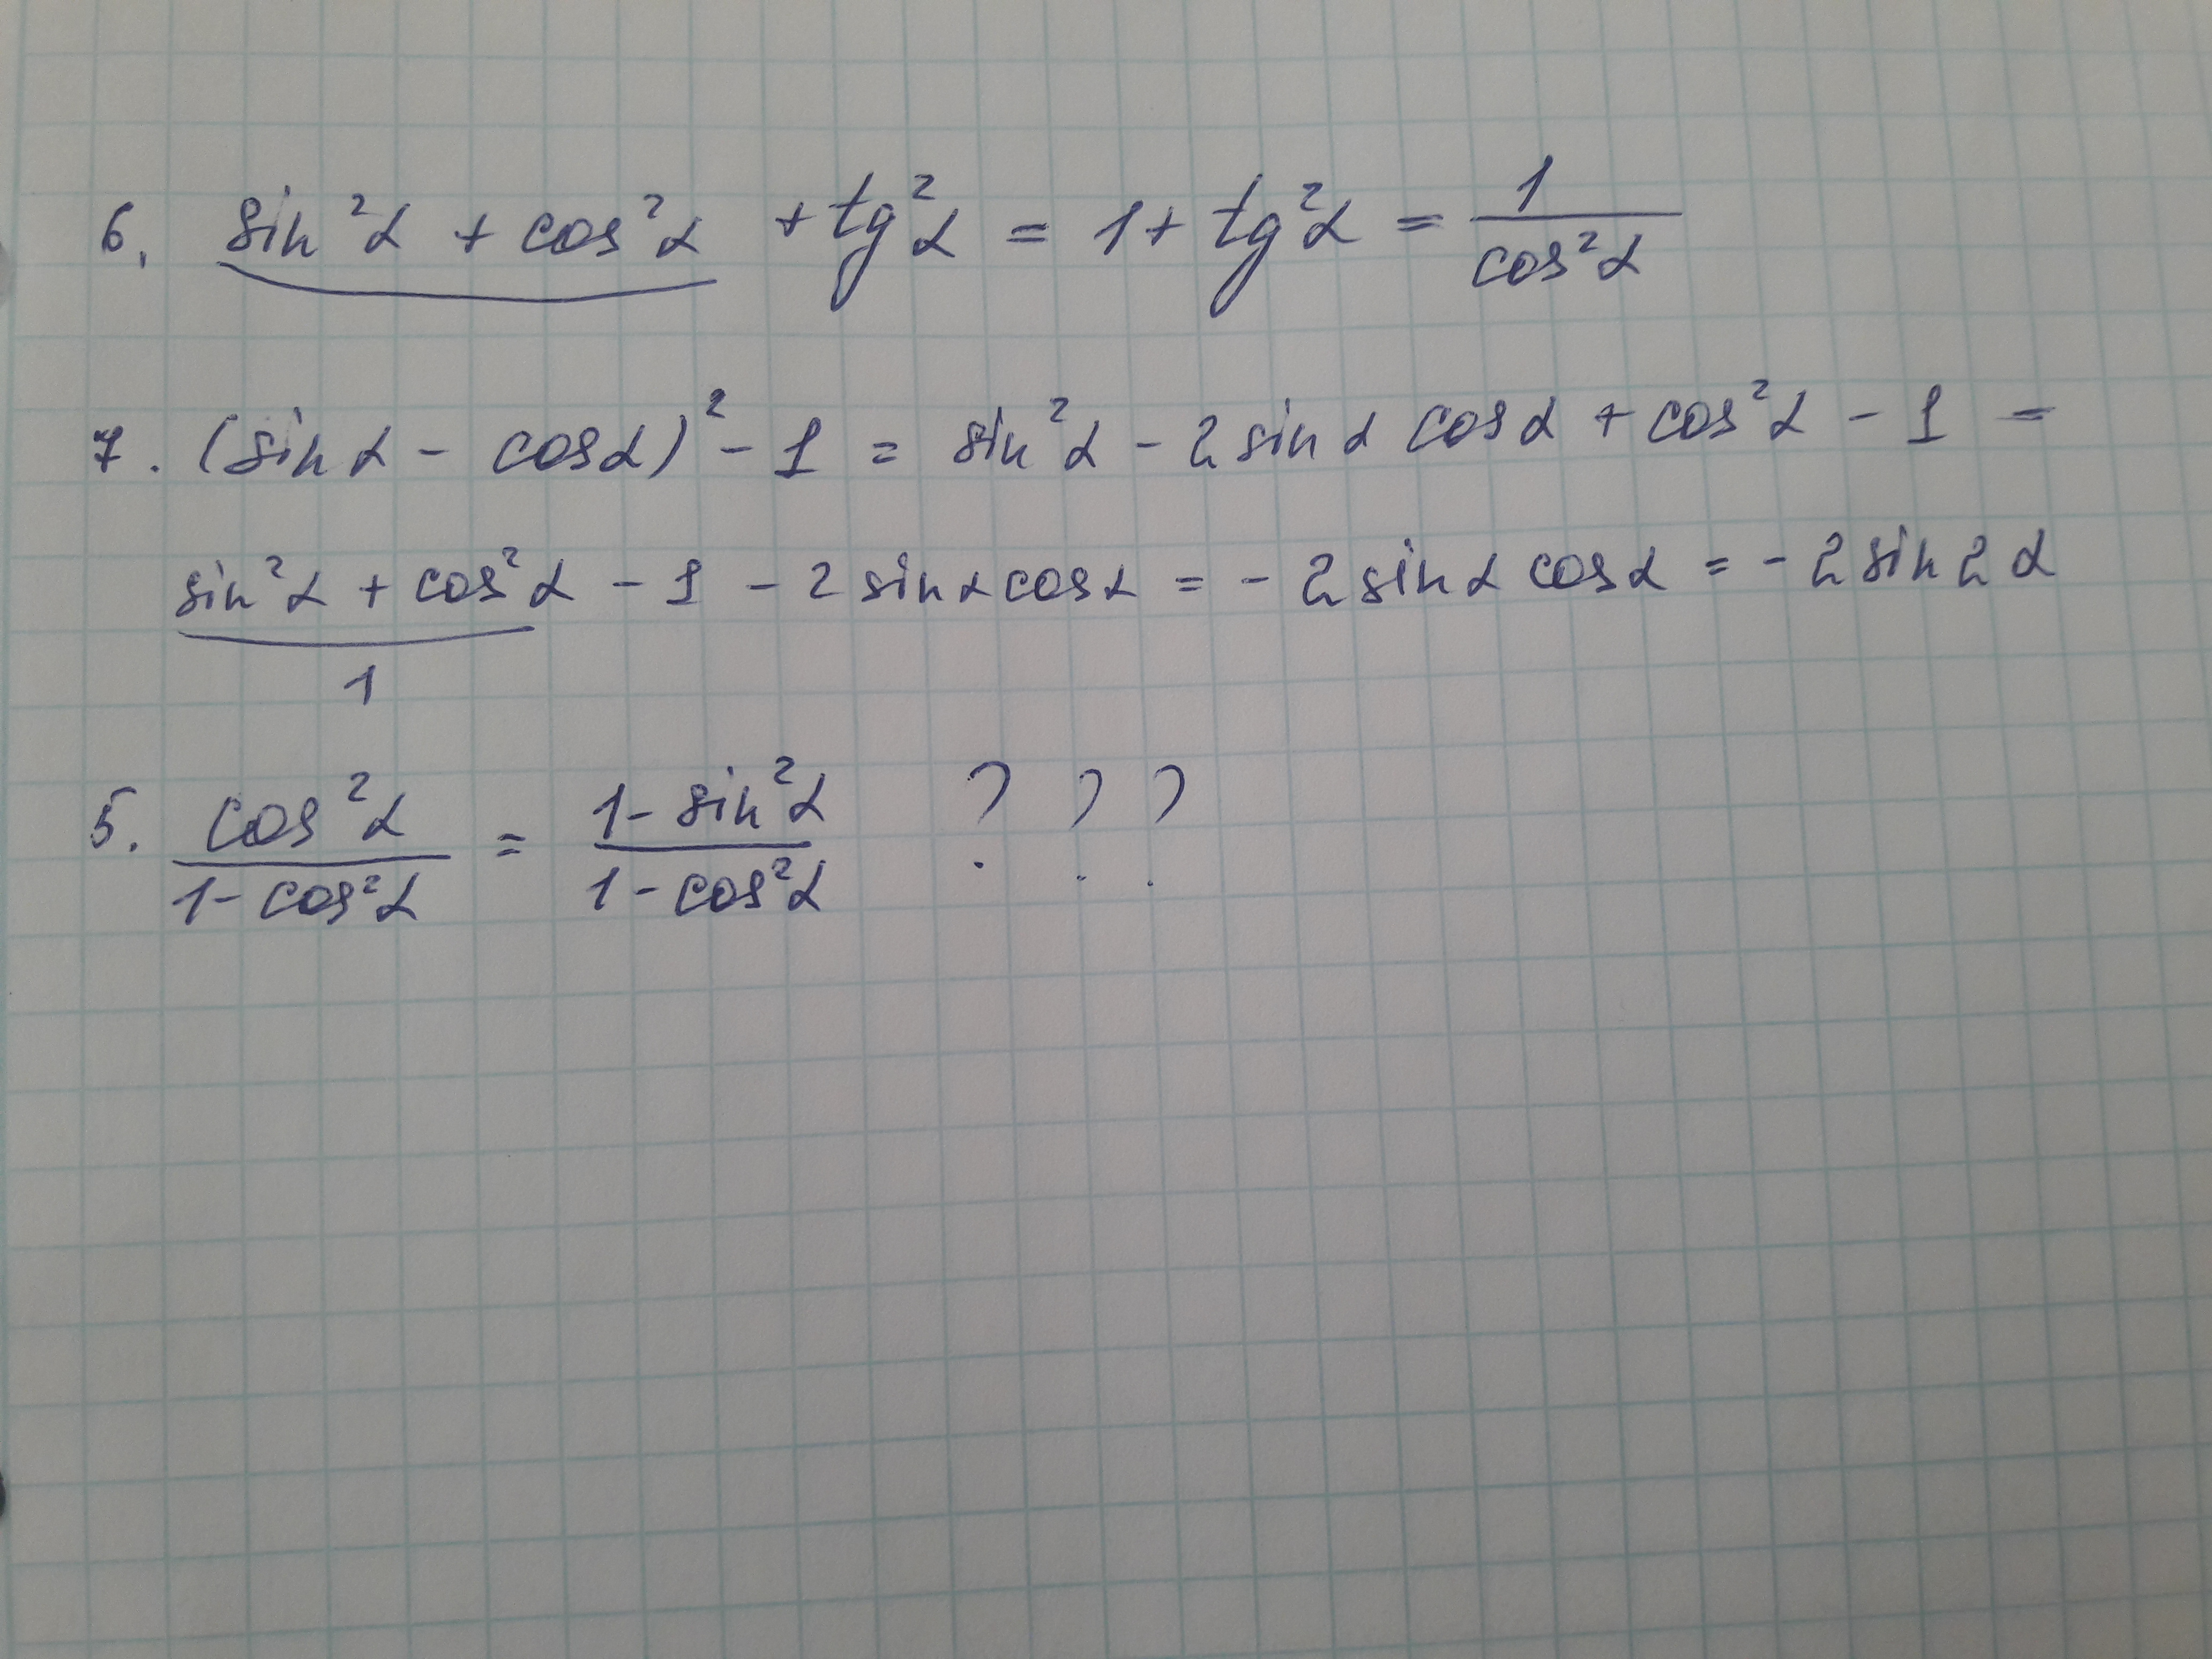 6. sin²α + cos²α + tg²α = 1 + tg²α = 1/cos²α
7. (sin α - cosα)² - 1 = sin²α - 2 sin α cos α + cos²α - 1 =
sin²α + cos²α - 1 - 2 sin α cos α = - 2 sin α cos α = - 2 sin 2 α
1
5. cos²α/(1 - cos²α) = (1 - sin²α)/(1 - cos²α) ? ? ?